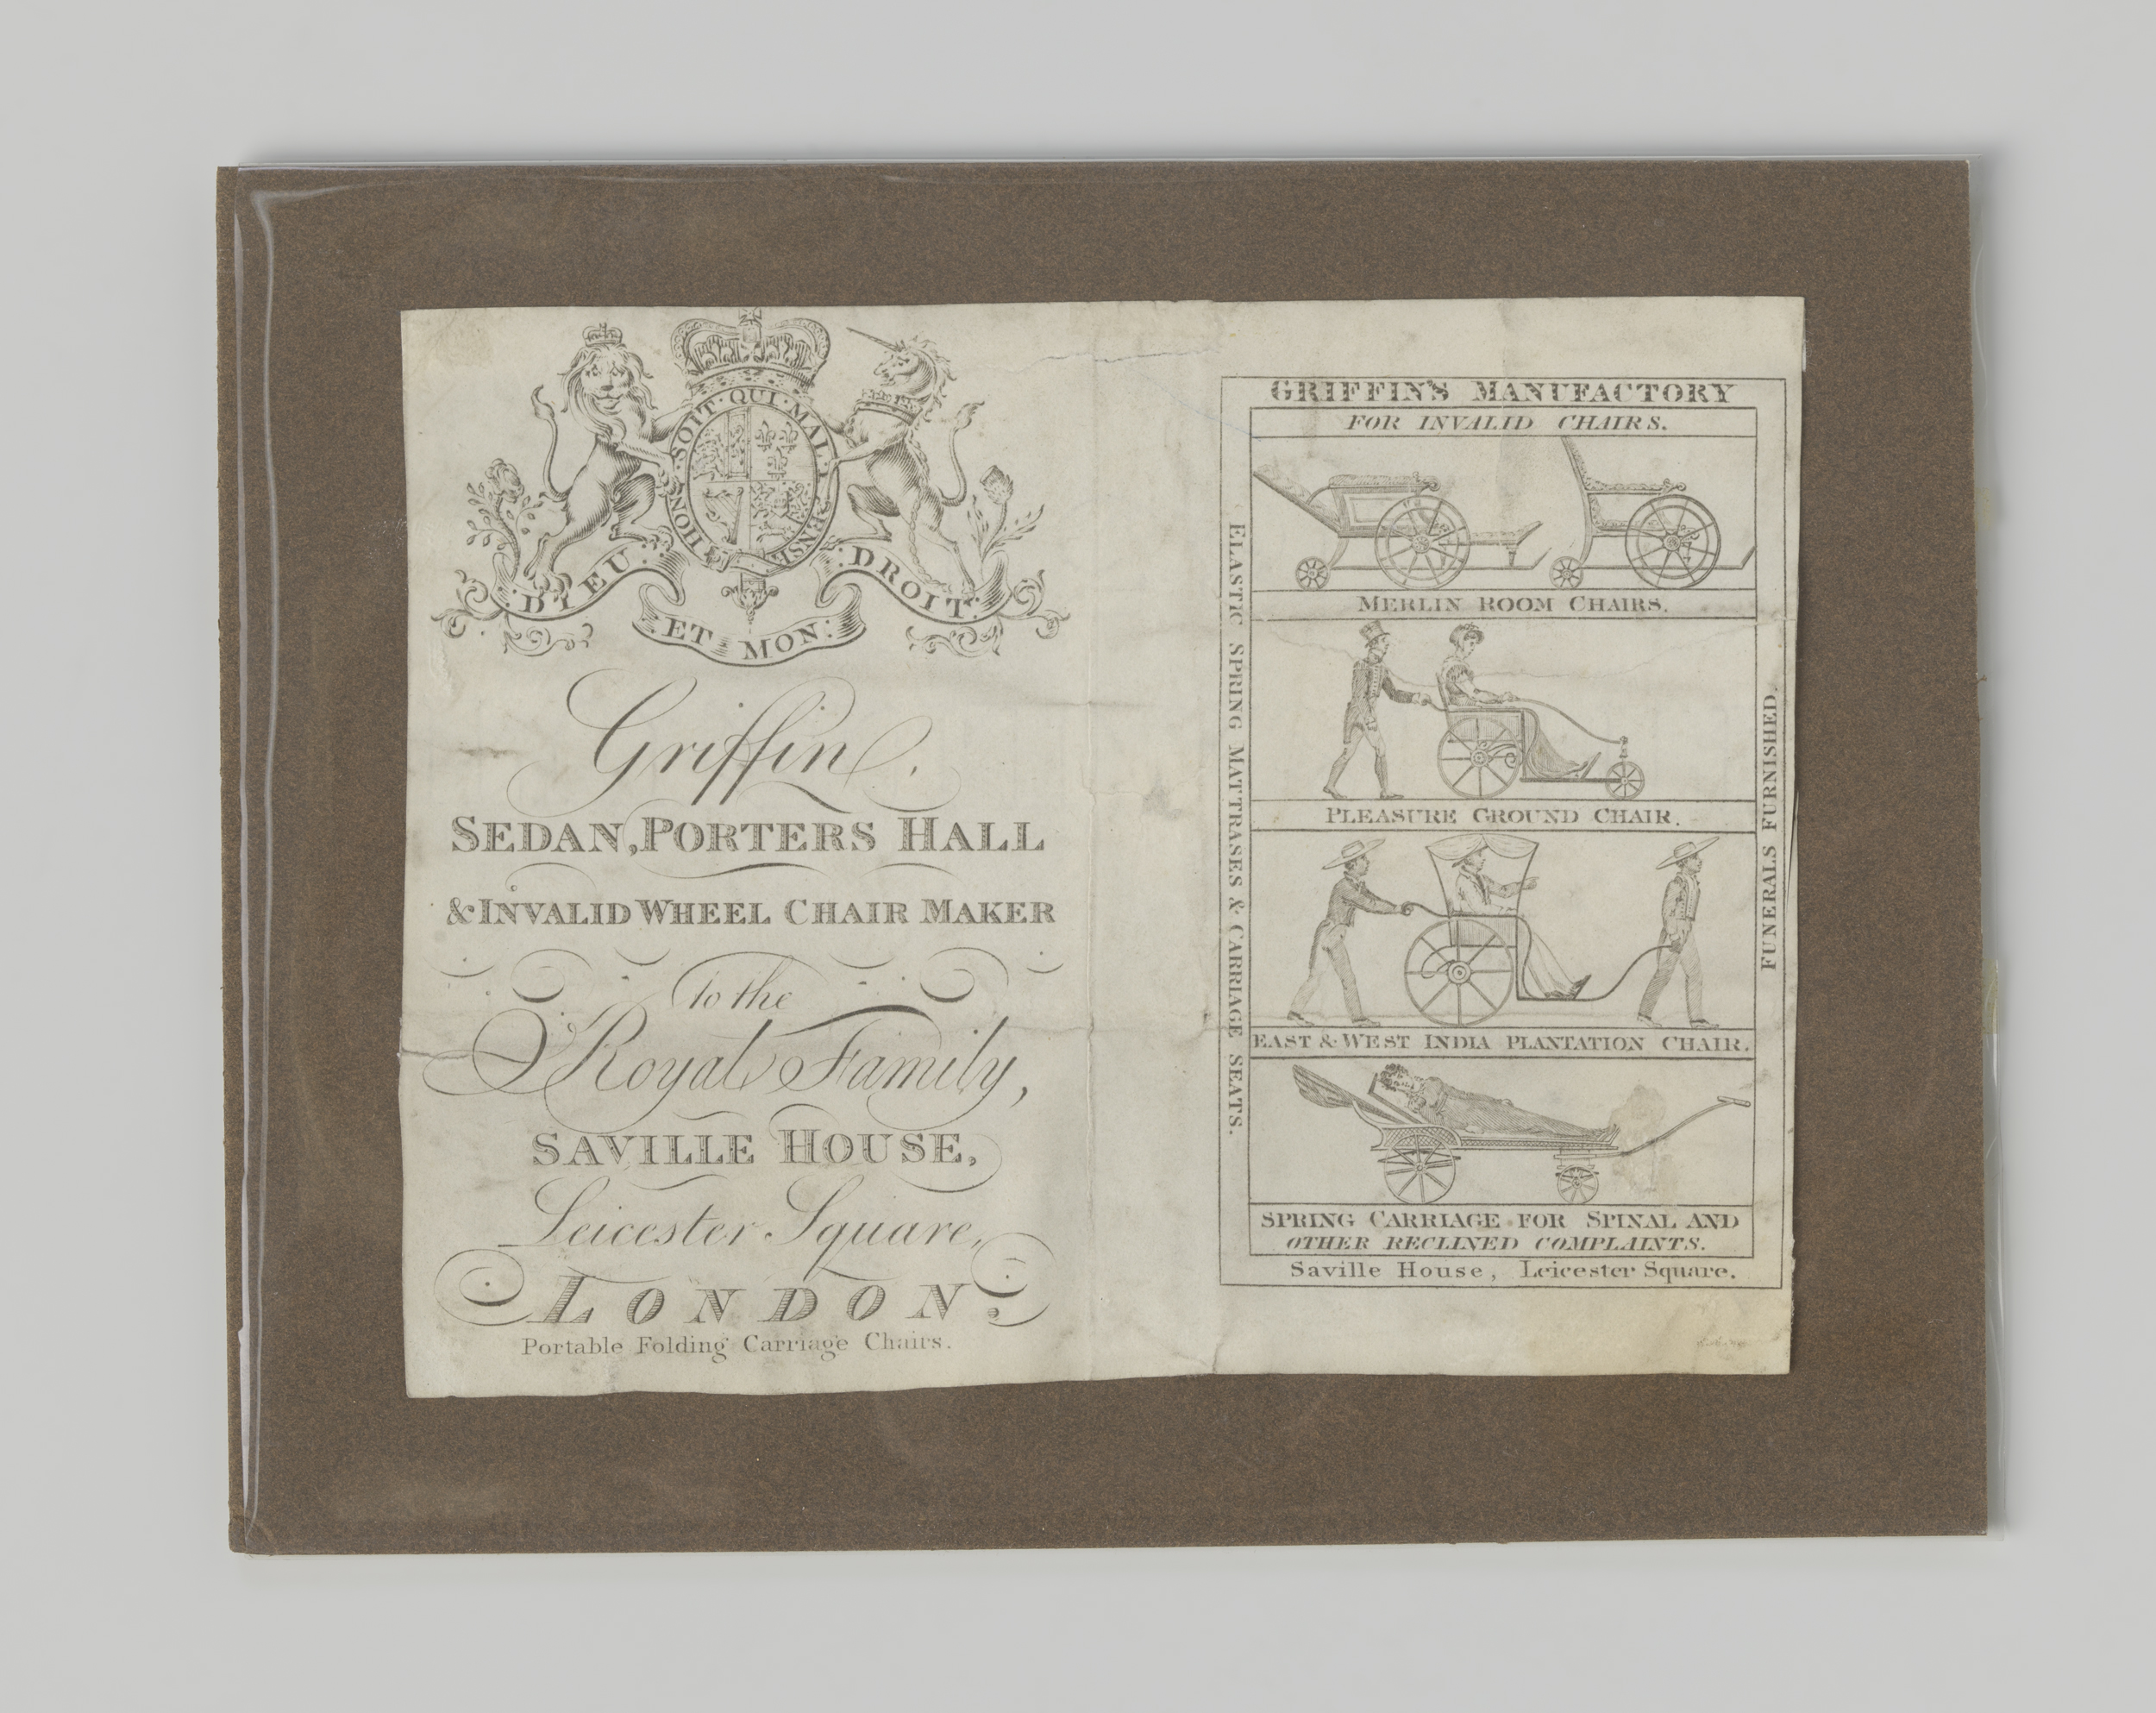 HONI·SOIT·QUI·MAL·Y·PENSE
DIEU: ET MON: DROIT:
Griffin,
SEDAN, PORTERS HALL
& INVALID WHEEL CHAIR MAKER
To the
Royal Family,
SAVILLE HOUSE,
Leicester Square,
LONDON;
Portable Folding Carriage Chairs.
GRIFFIN'S MANUFACTORY
FOR INVALID CHAIRS.
MERLIN ROOM CHAIRS.
PLEASURE GROUND CHAIR.
EAST & WEST INDIA PLANTATION CHAIR.
SPRING CARRIAGE FOR SPINAL AND
OTHER RECLINED COMPLAINTS.
Saville House, Leicester Square.
ELASTIC SPRING MATTRASES & CARRIAGE SEATS.
FUNERALS FURNISHED.